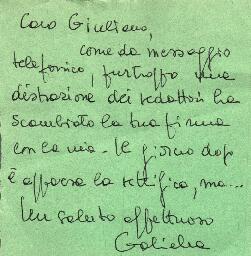 Caro Giuliano,
come da messaggio
telefonico, purtroppo una
distrazione dei redattori ha
scambiato la tua firma
con la mia. Il giorno dopo
è apparsa la rettifica, ma...
Un saluto affettuoso